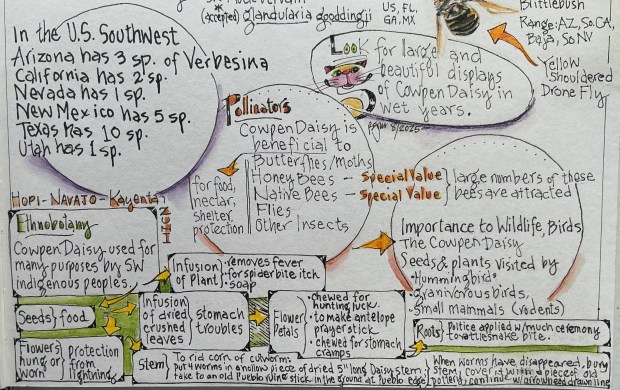 (accepted) glandularia gooddingii
US, FL,
GA, MX
Brittlebush
Range: AZ, So CA,
Baja, So NV
Yellow
Shouldered
Drone Fly
In the U.S. Southwest
Arizona has 3 sp. of Verbesina
California has 2 sp.
Nevada has 1 sp.
New Mexico has 5 sp.
Texas has 10 sp.
Utah has 1 sp.
Look for large and
beautiful displays
of Cowpen Daisy in
wet years.
8/2025
Pollinators
Cowpen Daisy is
beneficial to
Butterflies/Moths
Honey Bees - Special Value
Native Bees - Special Value
Flies
Other Insects
for food,
nectar,
shelter,
protection
large numbers of these
bees are attracted
Importance to Wildlife, Birds
The Cowpen Daisy
Seeds & plants visited by
· Hummingbirds
· Granivorous birds,
· Small mammals (rodents)
HOPI - NAVAJO - Kayenta
ZUNI
Ethnobotany
Cowpen Daisy used for
many purposes by SW
indigenous peoples.
Infusion
of Plant
· removes fever
· for spider bite itch
· soap
Seeds } food
Infusion
of dried
crushed
leaves
stomach
troubles
Flower
Petals
· chewed for
hunting luck.
· to make antelope
prayer stick
· chewed for stomach
cramps
Roots
Poltice applied w/much ceremony
to rattlesnake bite.
Flowers
hung or
worn
protection
from
lightning
Stem
To rid corn of cutworm:
put 4 worms in a hollow piece of dried 5" long Daisy stem;
take to an old Pueblo ruin stick in the ground at Pueblo edge
When worms have disappeared, bury
stem, cover it with a piece of old
pottery, continue